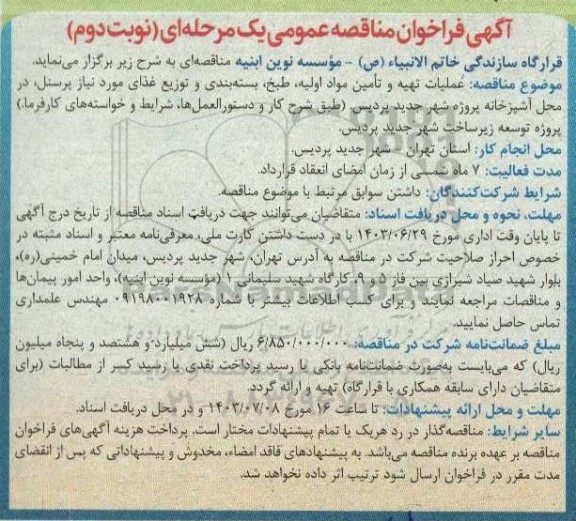 آگهی فراخوان مناقصه عمومی یک مرحله‌ای (نوبت دوم)
قرارگاه سازندگی خاتم الانبیاء (ص) - مؤسسه نوین ابنیه مناقصه‌ای به شرح زیر برگزار می‌نماید.
موضوع مناقصه: عملیات تهیه و تأمین مواد اولیه، طبخ، بسته‌بندی و توزیع غذای مورد نیاز پرسنل، در
محل آشپزخانه پروژه شهر جدید پردیس. (طبق شرح کار و دستورالعمل‌ها، شرایط و خواسته‌های کارفرما.)
پروژه توسعه زیرساخت شهر جدید پردیس.
محل انجام کار: استان تهران - شهر جدید پردیس.
مدت فعالیت: ۷ ماه شمسی از زمان امضای انعقاد قرارداد.
شرایط شرکت‌کنندگان: داشتن سوابق مرتبط با موضوع مناقصه.
مهلت، نحوه و محل دریافت اسناد: متقاضیان می‌توانند جهت دریافت اسناد مناقصه از تاریخ درج آگهی
تا پایان وقت اداری مورخ ۱۴۰۳/۰۶/۲۹ با در دست داشتن کارت ملی، معرفی‌نامه معتبر و اسناد مثبته در
خصوص احراز صلاحیت شرکت در مناقصه به آدرس تهران، شهر جدید پردیس، میدان امام خمینی(ره)،
بلوار شهید صیاد شیرازی بین فاز ۵ و ۹، کارگاه شهید سلیمانی ۱ (مؤسسه نوین ابنیه)، واحد امور پیمان‌ها
و مناقصات مراجعه نمایند و برای کسب اطلاعات بیشتر با شماره ۰۹۱۹۸۰۰۱۹۲۸ مهندس علمداری
تماس حاصل نمایید.
مبلغ ضمانت‌نامه شرکت در مناقصه: ۶/۸۵۰/۰۰۰/۰۰۰ ریال (شش میلیارد و هشتصد و پنجاه میلیون
ریال) که می‌بایست به‌صورت ضمانت‌نامه بانکی یا رسید پرداخت نقدی یا رشید کسر از مطالبات (برای
متقاضیان دارای سابقه همکاری با قرارگاه) تهیه و ارائه گردد.
مهلت و محل ارائه پیشنهادات: تا ساعت ۱۶ مورخ ۱۴۰۳/۰۷/۰۸ و در محل دریافت اسناد.
سایر شرایط: مناقصه‌گذار در رد هریک یا تمام پیشنهادات مختار است. پرداخت هزینه آگهی‌های فراخوان
مناقصه بر عهده برنده مناقصه می‌باشد. به پیشنهادهای فاقد امضاء، مخدوش و پیشنهاداتی که پس از انقضای
مدت مقرر در فراخوان ارسال شود ترتیب اثر داده نخواهد شد.